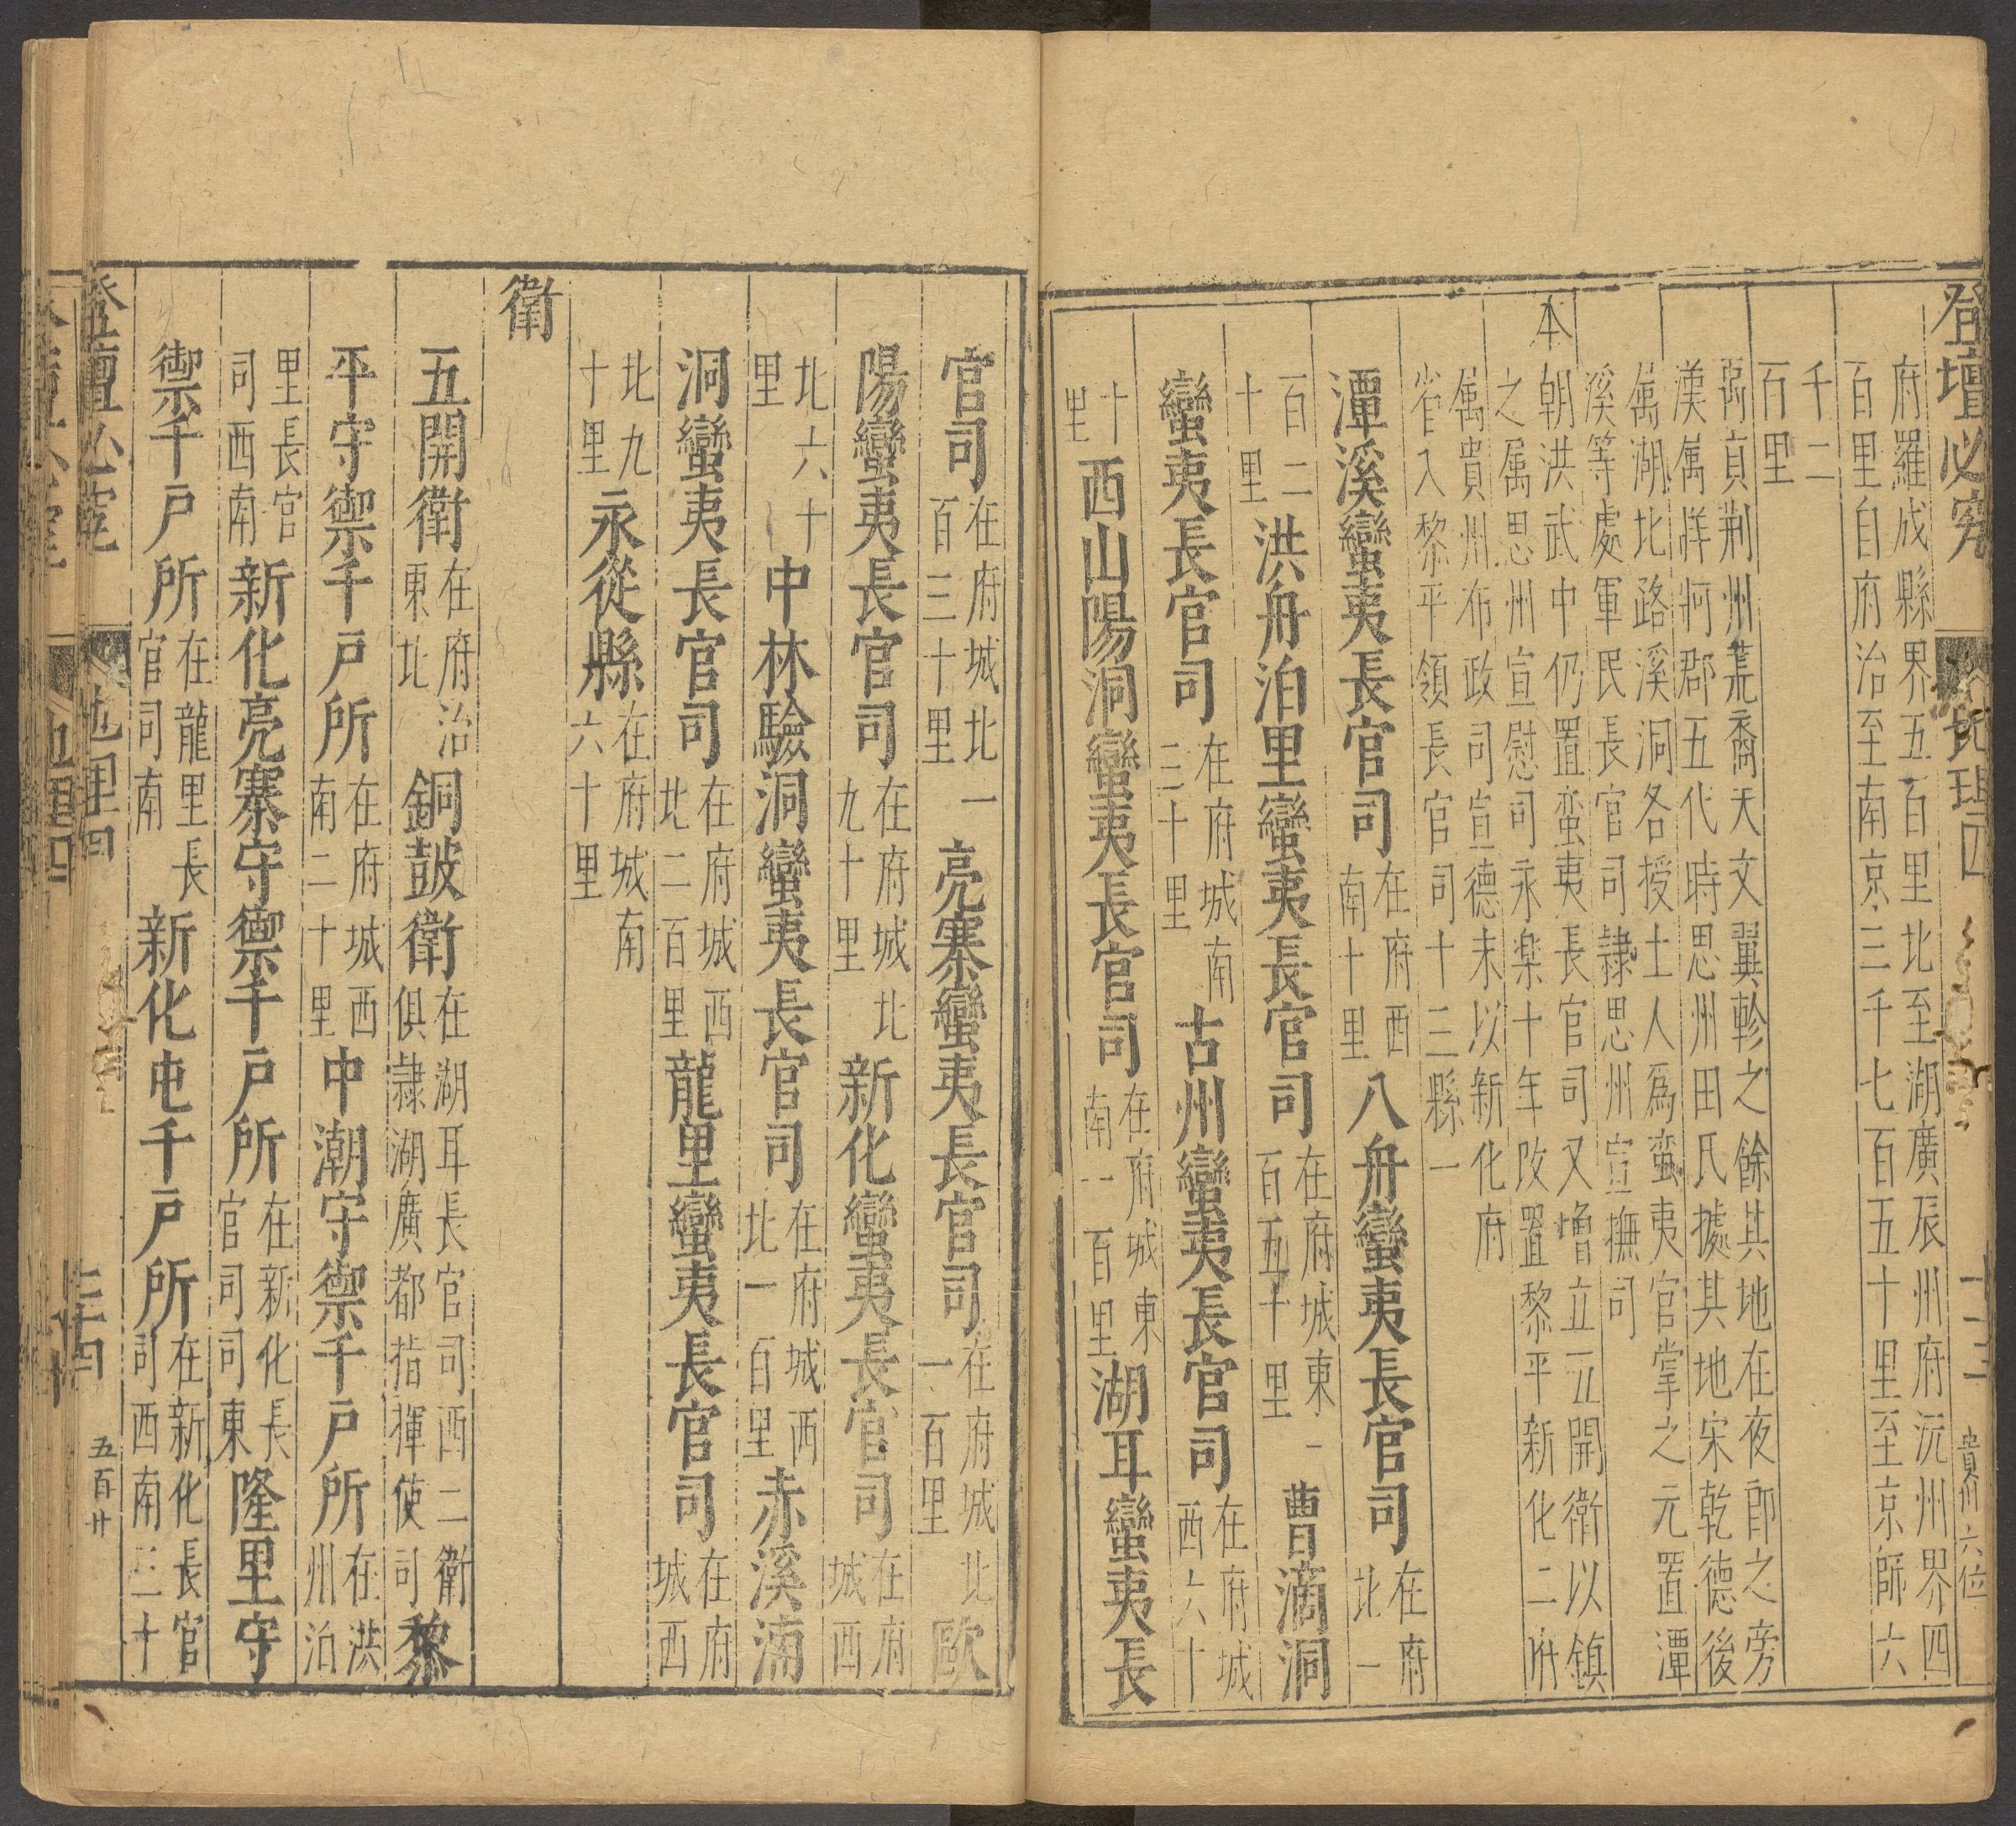 登壇必究
地理四
貴州 六位
府羅成縣界五百里北至湖廣辰州府沅州界四
百里自府治至南京三千七百五十里至京師六
千二
百里
禹貢荆州荒裔天文翼軫之餘其地在夜郎之旁
漢属牂牁郡五代時思州田氏據其地宋乾德後
属湖北路溪洞各授土人為蛮夷官掌之元置潭
溪等處軍民長官司隷思州宣撫司
本
朝洪武中仍置蛮夷長官司又增立五開衛以镇
之属思州宣慰司永楽十年改置黎平新化二府
属貴州布政司宣德末以新化府
省入黎平領長官司十三縣一
潭溪蠻夷長官司在府西
南十里八舟蠻夷長官司在府
北一
百二
十里洪舟泊里蠻夷長官司在府城東
百五十里曹滴洞
蠻夷長官司在府城南
三十里古州蠻夷長官司在府城
西六十
十
里西山陽洞蠻夷長官司在府城東
南一百里湖耳蠻夷長
官司在府城北一
百三十里亮寨蠻夷長官司在府城北
一百里歐
陽蠻夷長官司在府城北
九十里新化蠻夷長官司在府
城西
北六十
里中林驗洞蠻夷長官司在府城西
北一百里赤溪湳
洞蠻夷長官司在府城西
北二百里龍里蠻夷長官司在府
城西
北九
十里永從縣在府城南
六十里
衛
五開衛在府治
東北銅皷衛在湖耳長官司西二衛
俱隷湖廣都指揮使司黎
平守禦千戸所在府城西
南二十里中潮守禦千戸所在洪
州泊
里長官
司西南新化亮寨守禦千戸所在新化長
官司司東隆里守
禦千戸所在龍里長
官司南新化屯千戸所在新化長官
司西南三十
登壇必究
地里四
五百廾